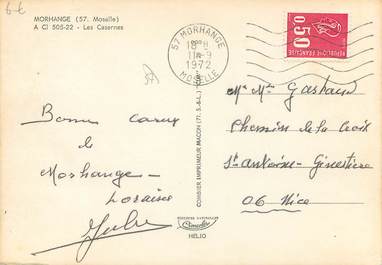 6 €
MORHANGE (57. Moselle)
A CI 505-22 - Les Casernes
57 MORHANGE
18H
11-9
1972
MOSELLE
0,50
REPUBLIQUE FRANCAISE
Bons
de
Morhange -
Lorraine
COMBIER IMPRIMEUR MACON (71. S.-&-L.)
Cimcolor
HELIO
Mr Mme Gastaud
Chemin de la Croix
St Antoine - Ginestière
06 Nice